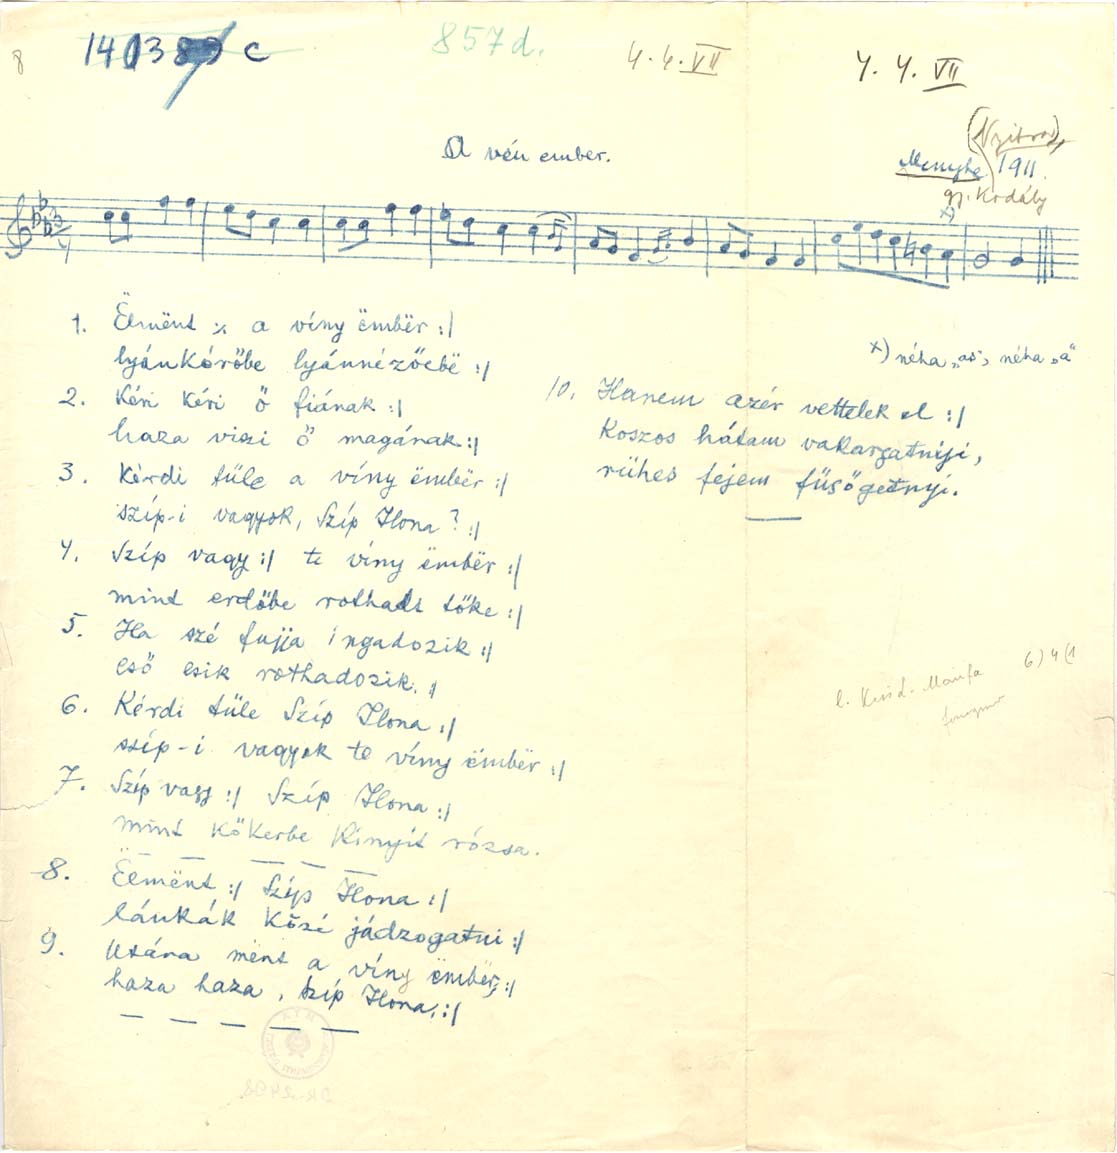 8
140389 c
857 d.
4.4. VII
4. 4. VII
A vén ember.
(Nyitra)
Menyhe 1911.
gy. Kodály
x)
1. Ëlmënt :/: a víny ëmbër :/
lyánkérőbe lyánnézőebë :/
x) néha „as”, néha „a”
2. Kéri kéri ő fiának :/
haza viszi ő magának :/
3. Kérdi tűle a víny ëmbër :/
szíp-i vagyok, Szíp Ilona? :/
4. Szíp vagy :/ te víny ëmbër :/
mint erdőbe rothadt tőke :/
5. Ha szé fujja ingadozik :/
eső esik rothadozik. :/
6. Kérdi tűle Szíp Ilona :/
szíp-i vagyok te víny ëmbër :/
7. Szíp vagy :/ Szíp Ilona :/
mint kőkerbe kinyít rózsa.
8. Ëlmënt :/ Szíp Ilona :/
lánkák közé jádzogatni :/
9. Utána mënt a víny ëmbër, :/
haza haza, Szíp Ilona, :/
10. Hanem azér vettelek el :/
Koszos hátam vakargatnyi,
rühes fejem füsögetnyi.
6) 4 (1
DR-2498